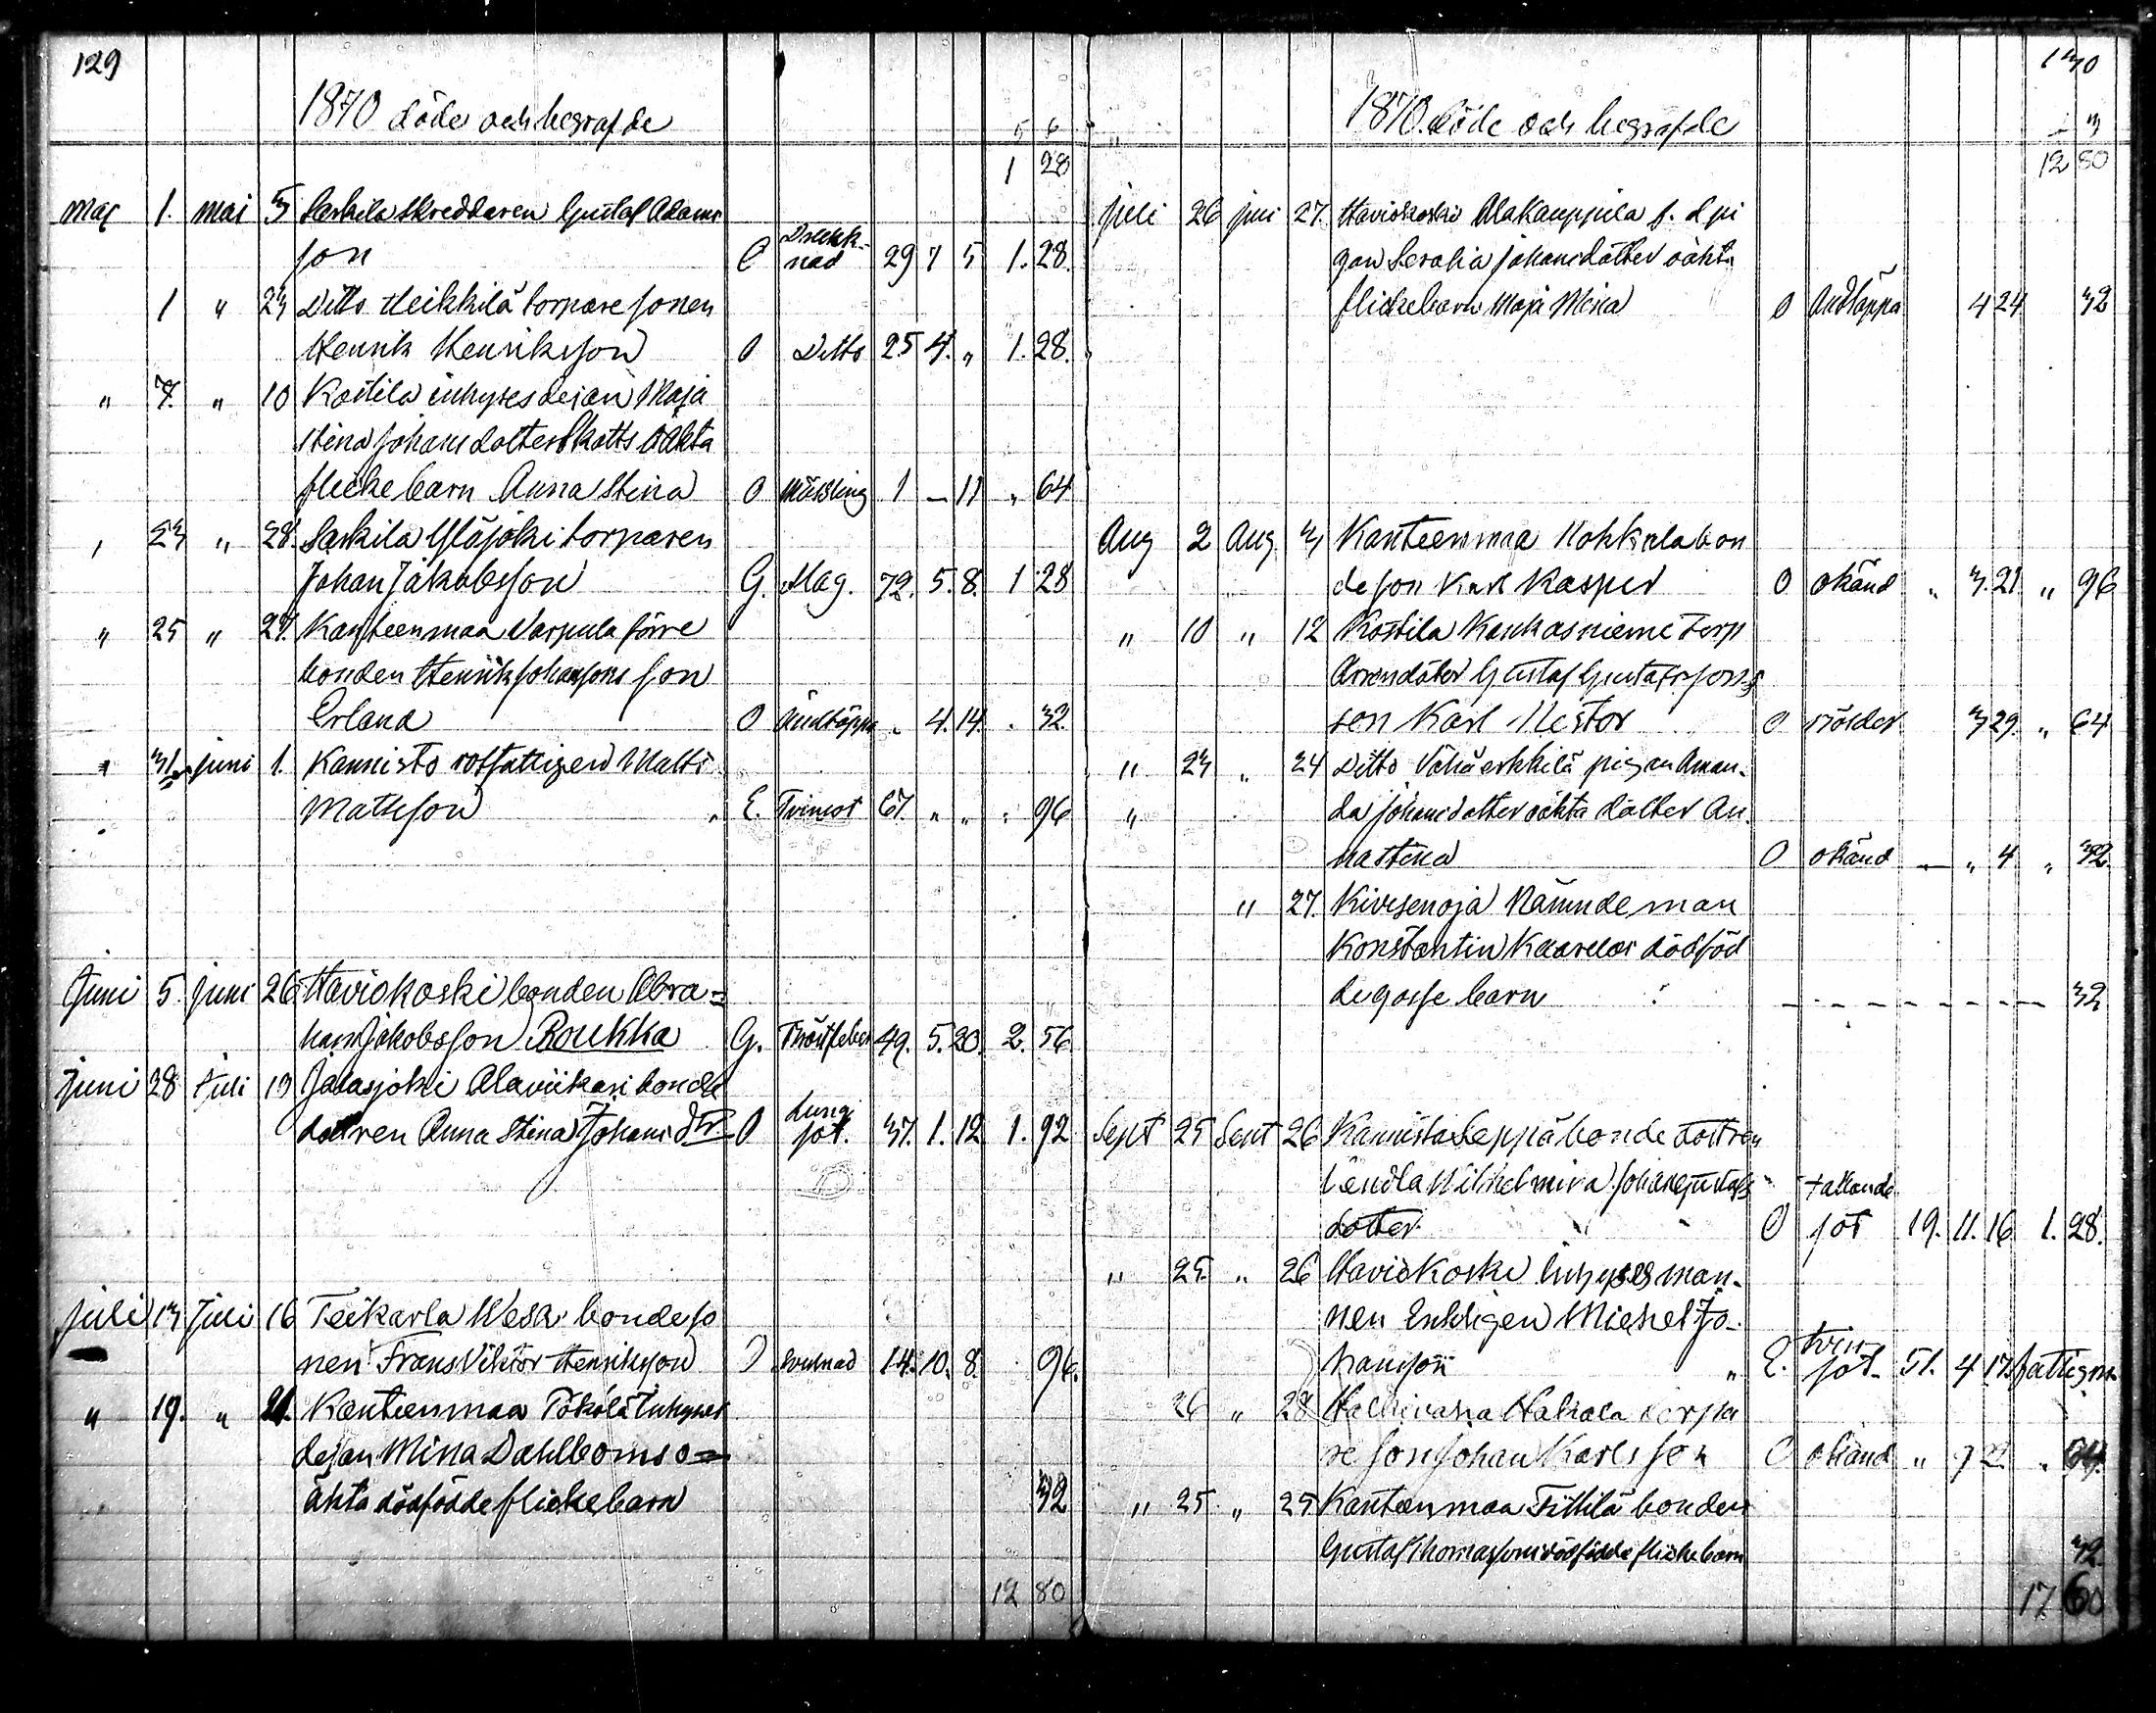 129
1870 döde och begrafde
1 28
maj 1. mai 5 Sarkila skreddaren Gustaf Adams
son O Drukk-nad 29 7 5 1. 28.
1 " 23 Ditto Heikkilä torpare sonen
Henrik Henriksson O Ditto 25 4. " 1. 28.
" 7. " 10 Kostila inhyses dejan Maja
Stina Johansdotter Skotts oäkta
flickebarn Anna Stina O Mässling 1 – 11 " 64
" 23 " 28. Sarkila Yläjoki torparen
Johan Jakobsson G. Mag. 72. 5. 8. 1 28
" 25 " 29. Kanteenmaa Varpula förre
bonden Henrik Johanssons son
Erland O Andtäppa " 4. 14. " 32
" 31 juni 1. Kannisto rotfattigen Matts
Mattsson E. Tvinsot 67. " " " 96
Juni 5. juni 26 Haviokoski bonden Abra=
ham Jakobsson Roukka G. Fröstfeber 49. 5. 20. 2. 56
Juni 28 Juli 13 Jalasjoki Alaviikari bonde
dottren Anna Stina Johansdtr. O Lung sot. 37. 1. 12. 1. 92
Juli 13 Juli 16 Teikarla Weski bondeso
nen Frans Viktor Henriksson O Drunnad 14. 10. 8. 96.
" 19. " 21. Kanteenmaa Pökölä Inhyses
dejan Mina Dahlboms o=
äkta dödfödde flickebarn 32
12 80
130
1870. döde och begrafde
12 80
juli 26 juli 27. Haviokoski Alakauppila f. d pi
gan Serafia Johansdotter oäkta
flickebarn Maja Mina O Andtäppa 4 24 32
Aug 2 Aug. 3 Kanteenmaa Uotila bon
de son Karl Kasper O okänd " 3. 21 " 96
" 10 " 12 Kostila Kaukasniemi Torp
Arrendator Gustaf Gustafssons
son Karl Nestor O rölder 3 29. " 64
" 23 " 24 Ditto Vähäerkkilä pigan Aman-
" da Johansdotter oäkta dotter An
na Stina O okänd – " 4 " 32.
" 27. Kivisenoja Nämndeman
Konstantin Kaarelas dödföd
de gosse barn 32
Sept 25 Sept 26 Kannisto Seppä bonde dottren
Vendla Wilhelmina Johan Gustafs
dotter O fallande sot 19. 11. 16 1. 28.
" 25. " 26 Haviokoski Inhysesman-
nen Enklingen Michel Jo-
hansson " E. tvin sot. 51. 4 17 fattigm
26 " 28 Halkivaha Hakala torpa
re son Johan Karlsson O okänd " 7 2. " 64.
" 25 " 25 Kanteenmaa Tittilä bonden
Gustaf Thomassons dödfödde flickebarn 32
17 60